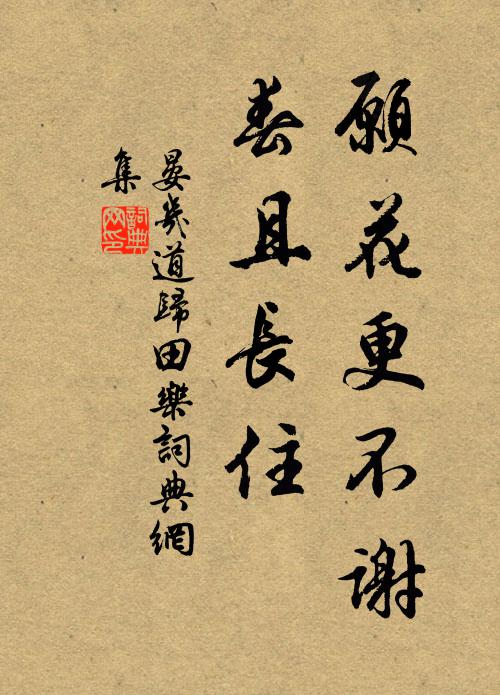 願花更不謝
春且長住
晏幾道歸田樂詞典網
集
詞典
网印